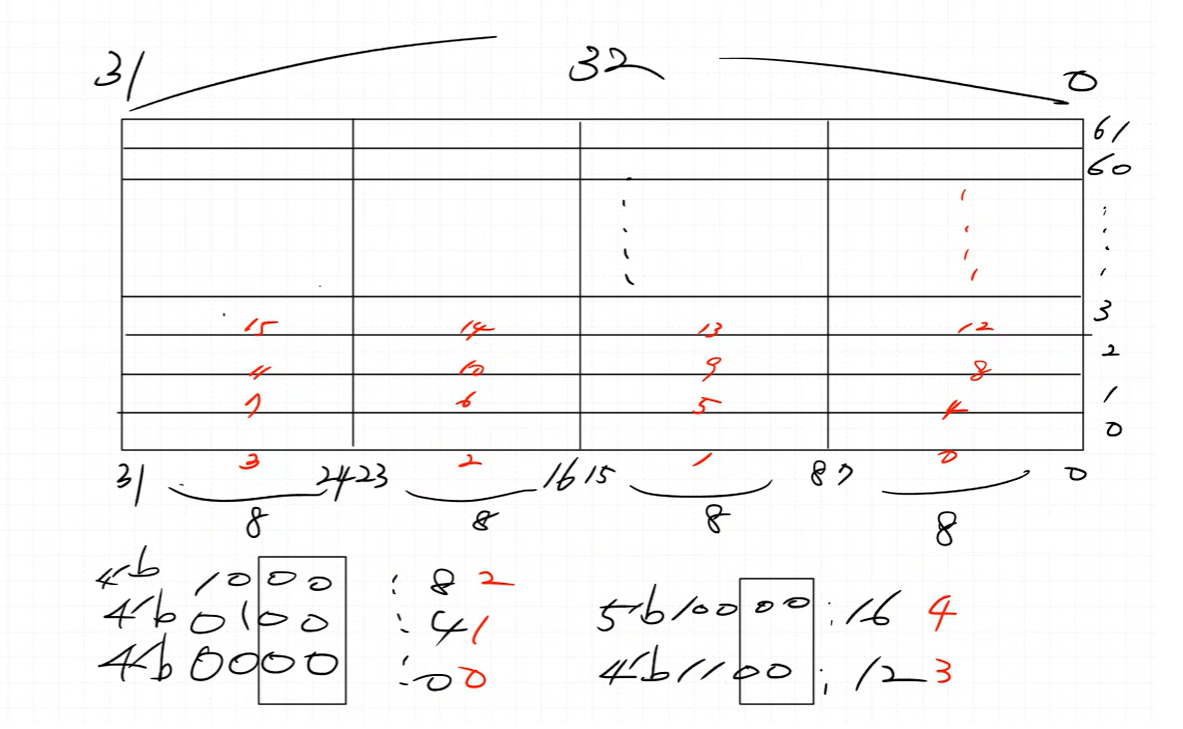 31 32 0
61
60
3
15 14 13 12
2
11 10 9 8
1
7 6 5 4
0
3 2 1 0
31 24 23 16 15 8 7 0
8 8 8 8
4b 1000 : 8 2
4'b 0100 : 4 1
4'b 0000 : 0 0
5'b10000 : 16 4
4'b1100 : 12 3